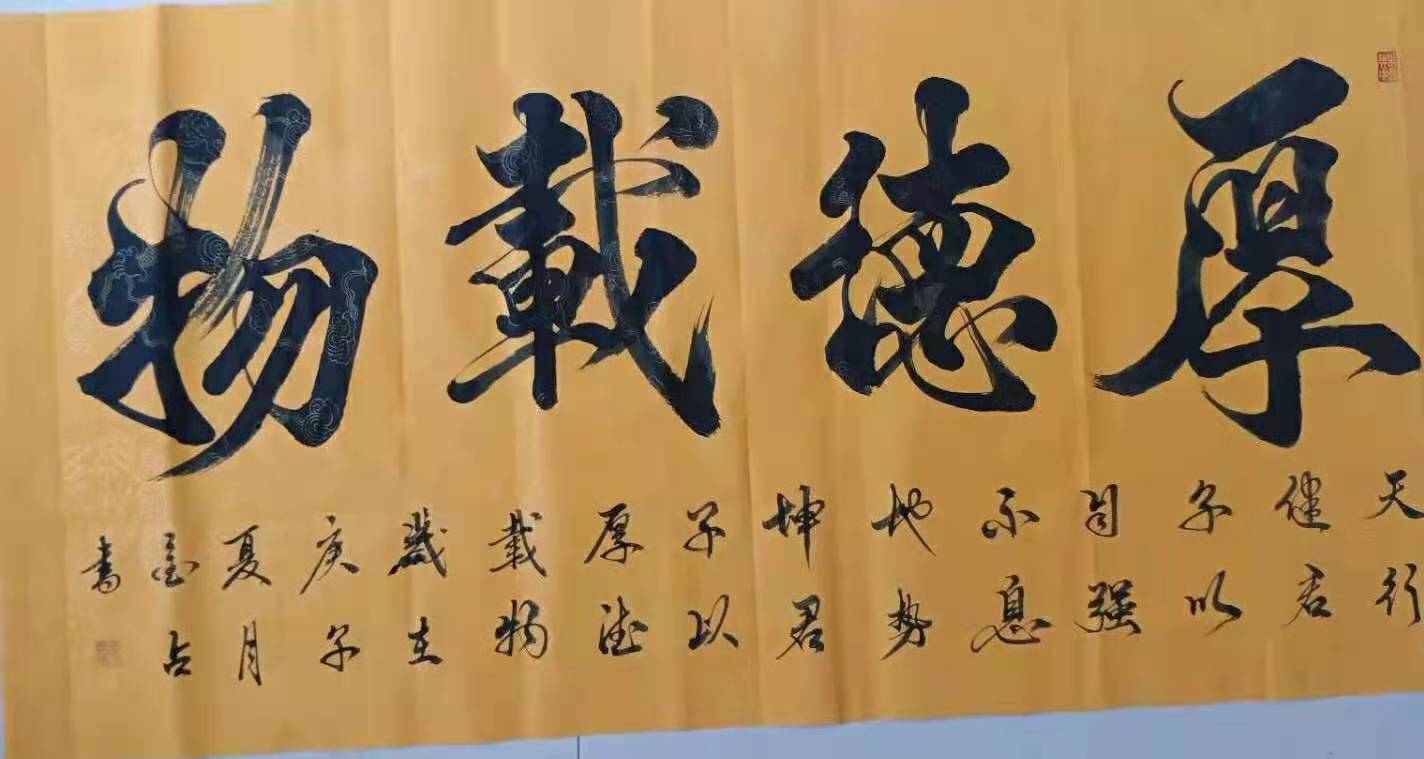 厚德載物
天行
健君
子以
自强
不息
地势
坤君
子以
厚德
載物
歲在
庚子
夏月
金占
書